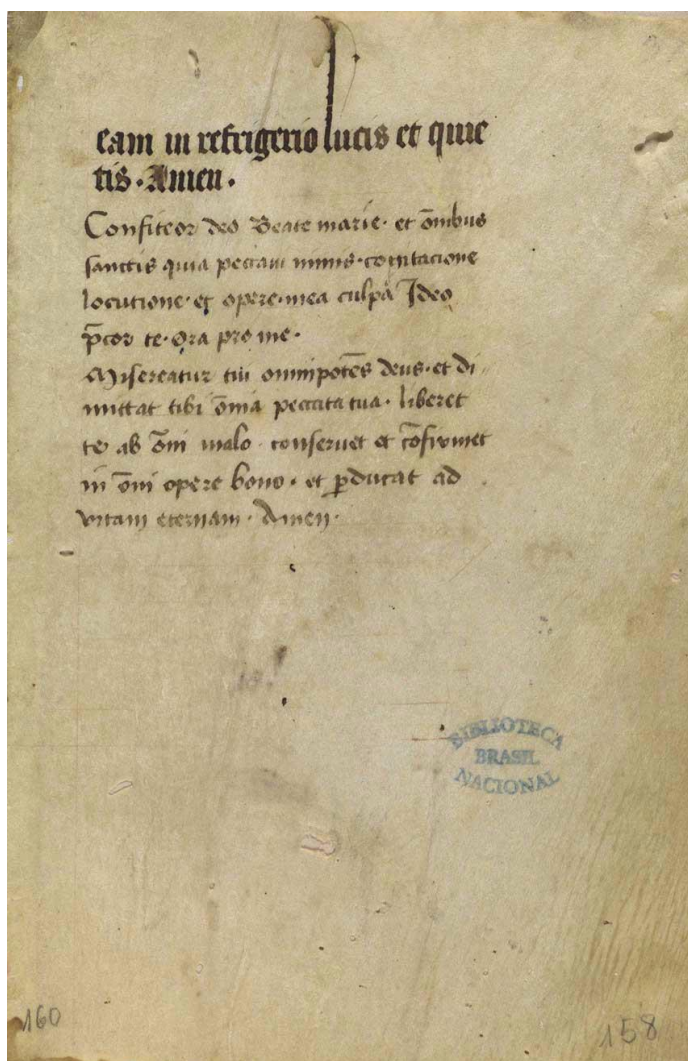 eam in refrigerio lucis et quie
tis · Amen ·
Confiteor deo Beate marie · et om̄ibus
sanctis quia peccaui nimis · cogitacione
locutione · et opere · mea culpa Ideo
p̄cor te · ora pro me ·
Misereatur tui omnipotēs deus · et di
mittat tibi om̄ia peccata tua · liberet
te ab om̄i malo · conseruet et cōfirmet
in om̄i opere bono · et ꝑducat ad
vitam eternam · Amen ·
BIBLIOTECA
BRASIL
NACIONAL
160
158